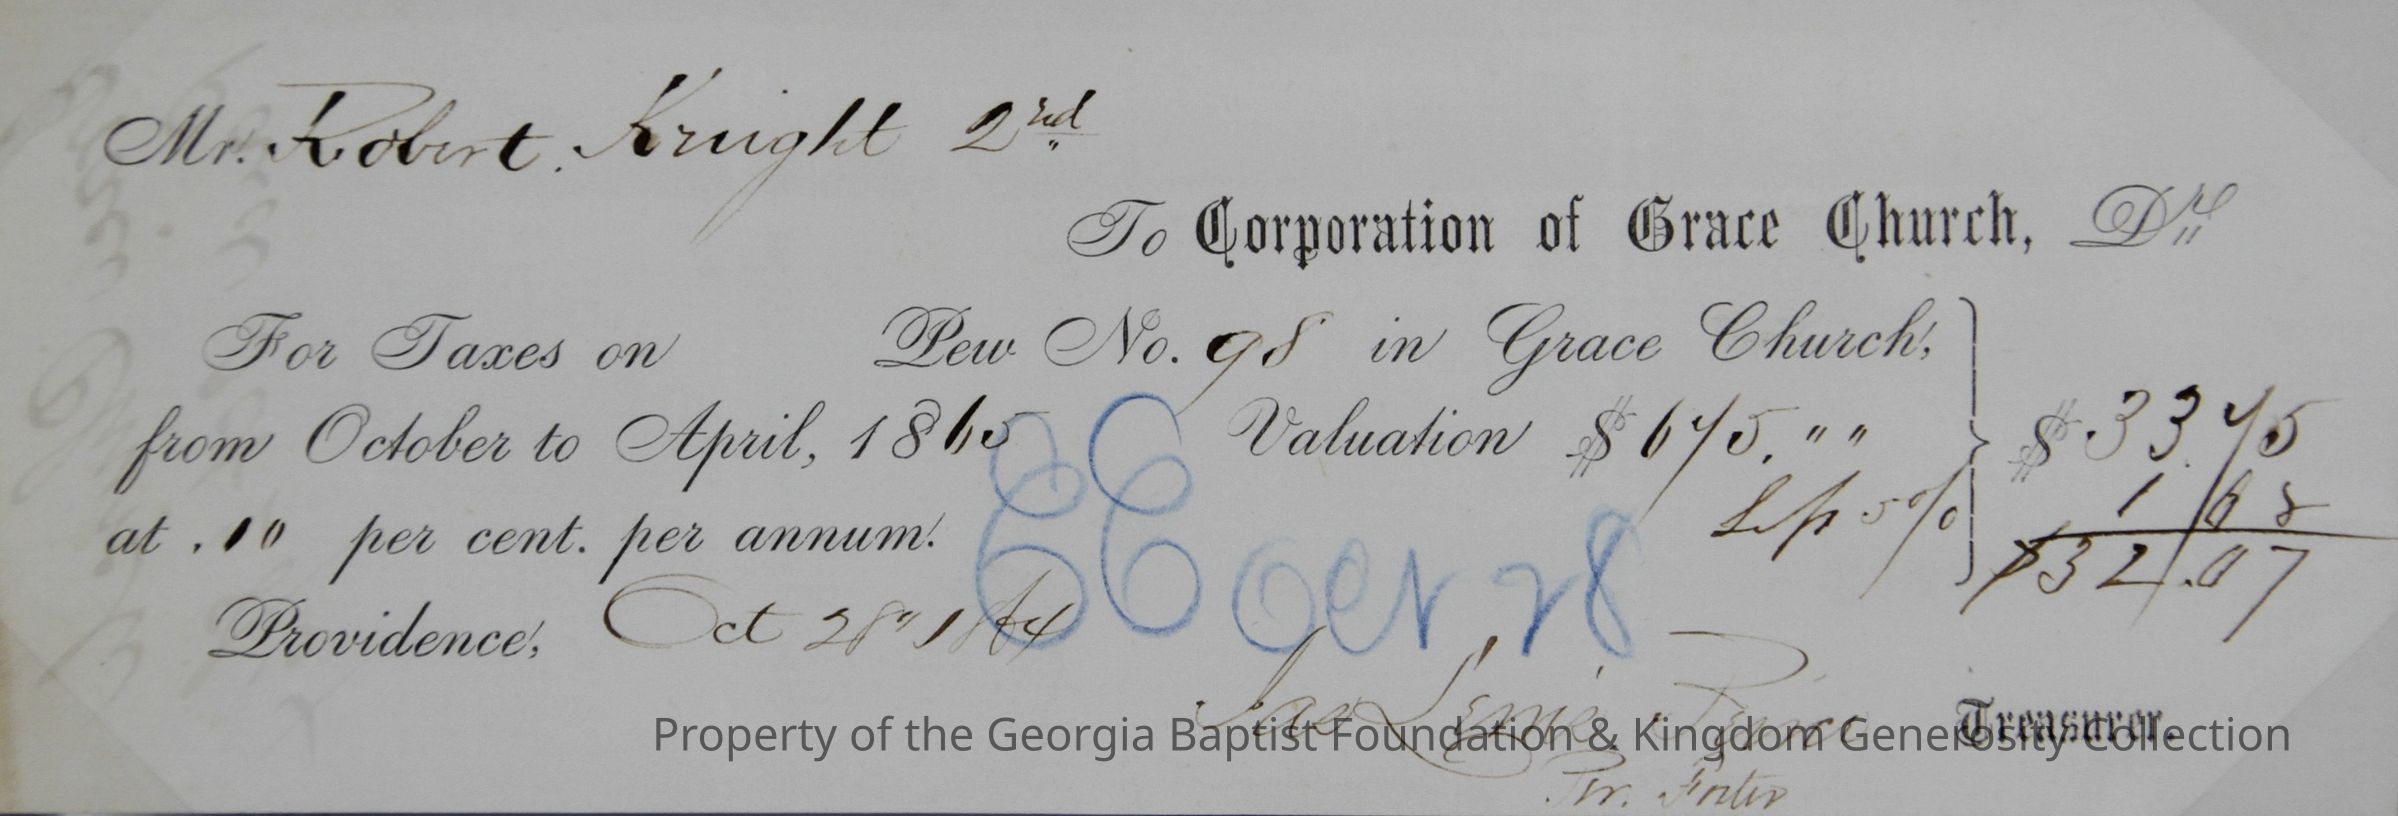 Mr. Robert Knight 2nd
To Corporation of Grace Church, Dr.
For Taxes on Pew No. 98 in Grace Church,
from October to April, 1865 Valuation $675. " " $33.75
Less 5% 1 68
at .10 per cent. per annum. $32.07
Providence, Oct 28" 1864
Oct 28
Treasurer.
Property of the Georgia Baptist Foundation & Kingdom Generosity Collection
Per. Foster